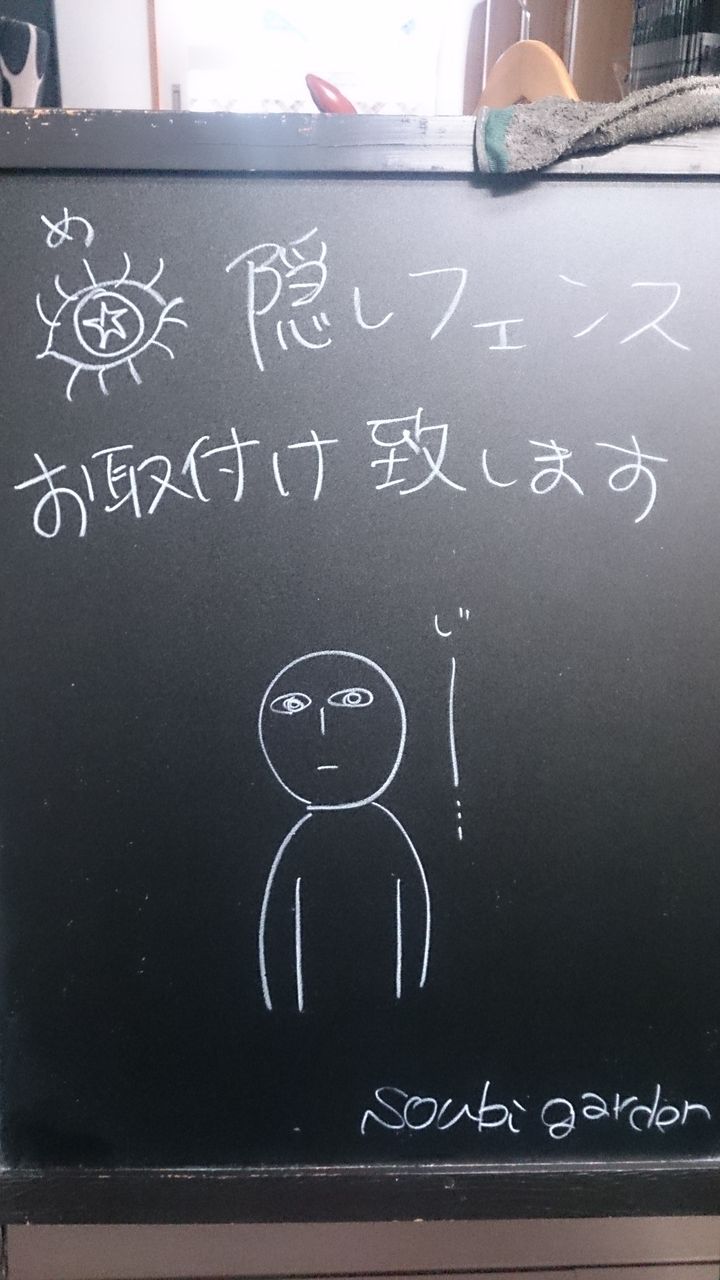 め
隠しフェンス
お取付け致します
じー…
Soubi garden